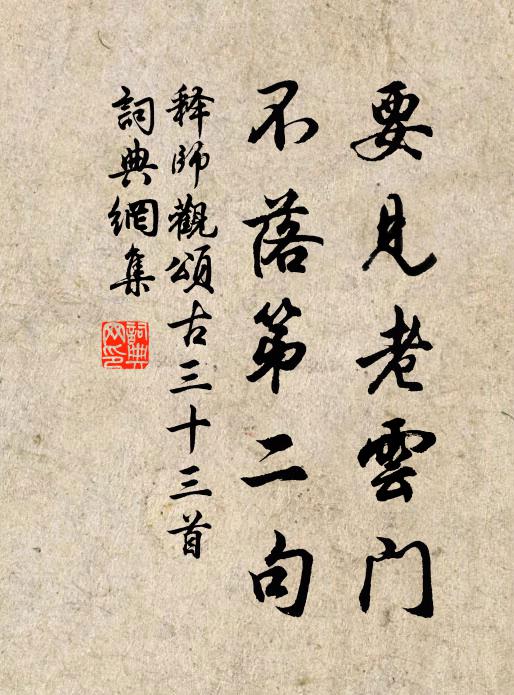 要見老雲門
不落第二句
释師觀頌古三十三首
詞典網集
詞典
网印